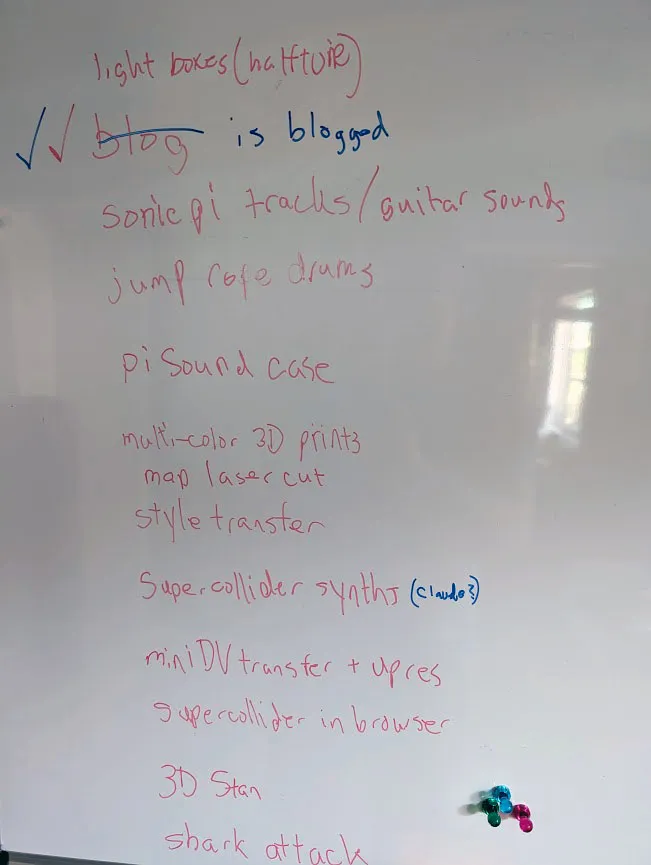 light boxes (halftone)
✓✓ blog is blogged
sonic pi tracks/guitar sounds
jump rope drums
pi sound case
multi-color 3D prints
map laser cut
style transfer
Supercollider synths (Claude?)
miniDV transfer + upres
supercollider in browser
3D Stan
shark attack